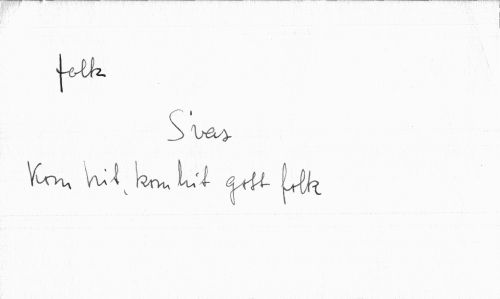 folk
S'vas
Kom hit, kom hit gott folk